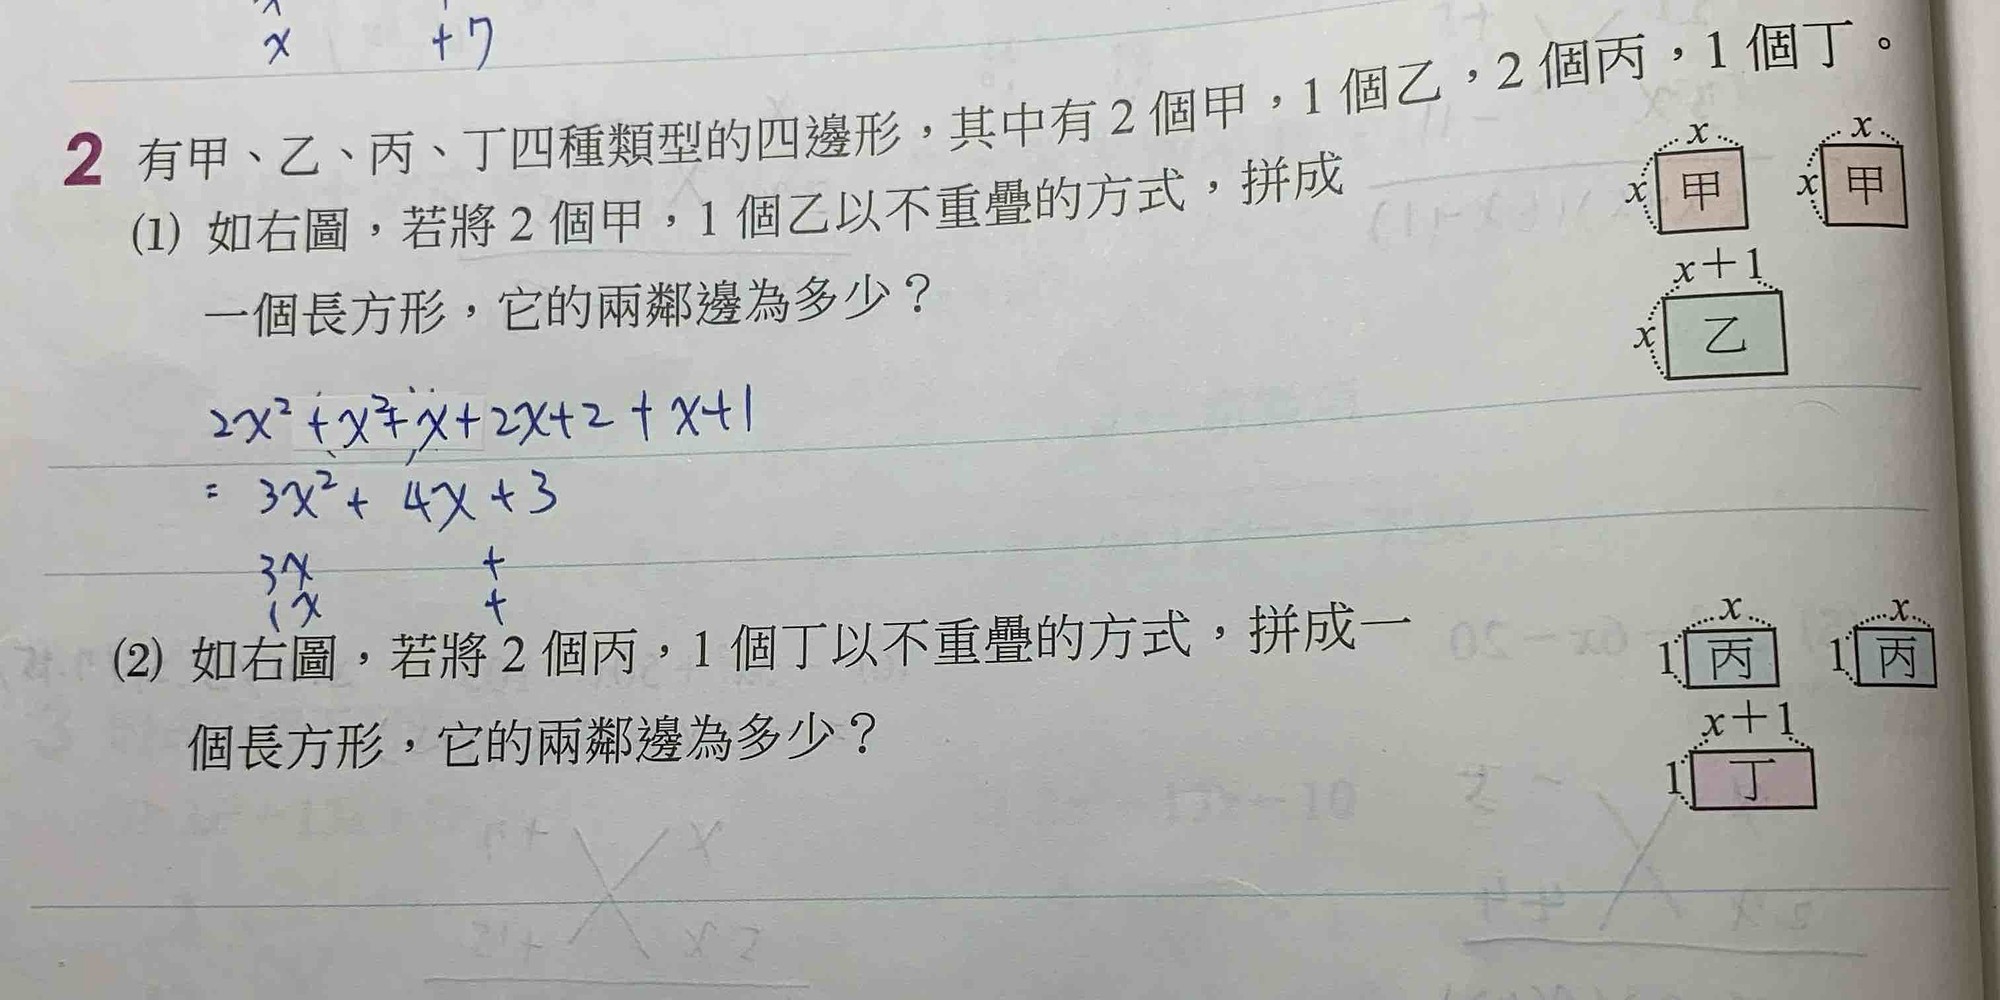 x +7
2 有甲、乙、丙、丁四種類型的四邊形，其中有2個甲，1個乙，2個丙，1個丁。
(1) 如右圖，若將2個甲，1個乙以不重疊的方式，拼成
一個長方形，它的兩鄰邊為多少？
x x
x 甲 x 甲
x+1
x 乙
2x²+x²+x+2x+2+x+1
= 3x²+4x+3
3x +
1x +
(2) 如右圖，若將2個丙，1個丁以不重疊的方式，拼成一
個長方形，它的兩鄰邊為多少？
x x
1 丙 1 丙
x+1
1 丁